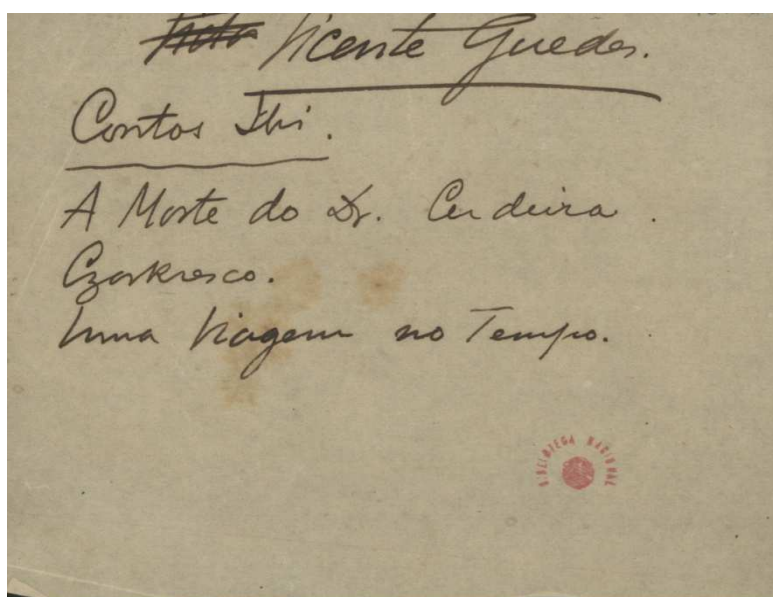 Vicente Guedes.
Contos
A Morte do Dr. Cerdeira.
Czarkresco.
Uma Viagem no Tempo.
BIBLIOTECA NACIONAL